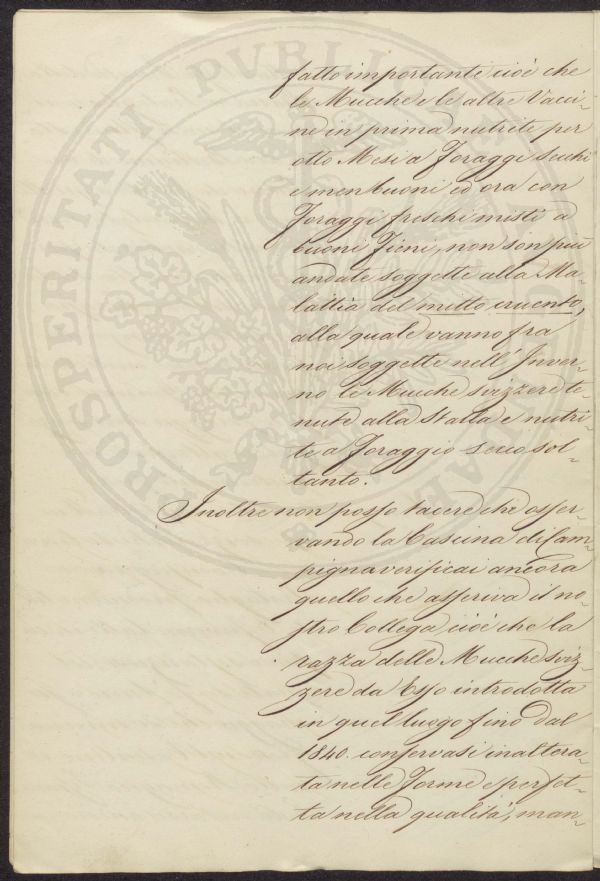 fatto importante cioè che
le Mucche e le altre Vacci-
ne in prima nutrite per
otto Mesi a Foraggi secchi
e men buoni ed ora con
Foraggi freschi misti a
buoni Fieni, non son più
andate soggette alla Ma-
lattia del mitto cruento,
alla quale vanno fra
noi soggette nell' Inver-
no le Mucche svizzere te-
nute alla Stalla e nutri-
te a Foraggio secco sol-
tanto.
Inoltre non posso tacere che osser-
vando la Cascina di Cam-
pigna verificai ancora
quello che asseriva il no-
stro Collega cioè che la
razza delle Mucche sviz-
zere da Esso introdotta
in quel luogo fino dal
1840. conservasi inaltera-
ta nelle Forme e perfet-
ta nella qualità, man-
PROSPERITATI PUBLI